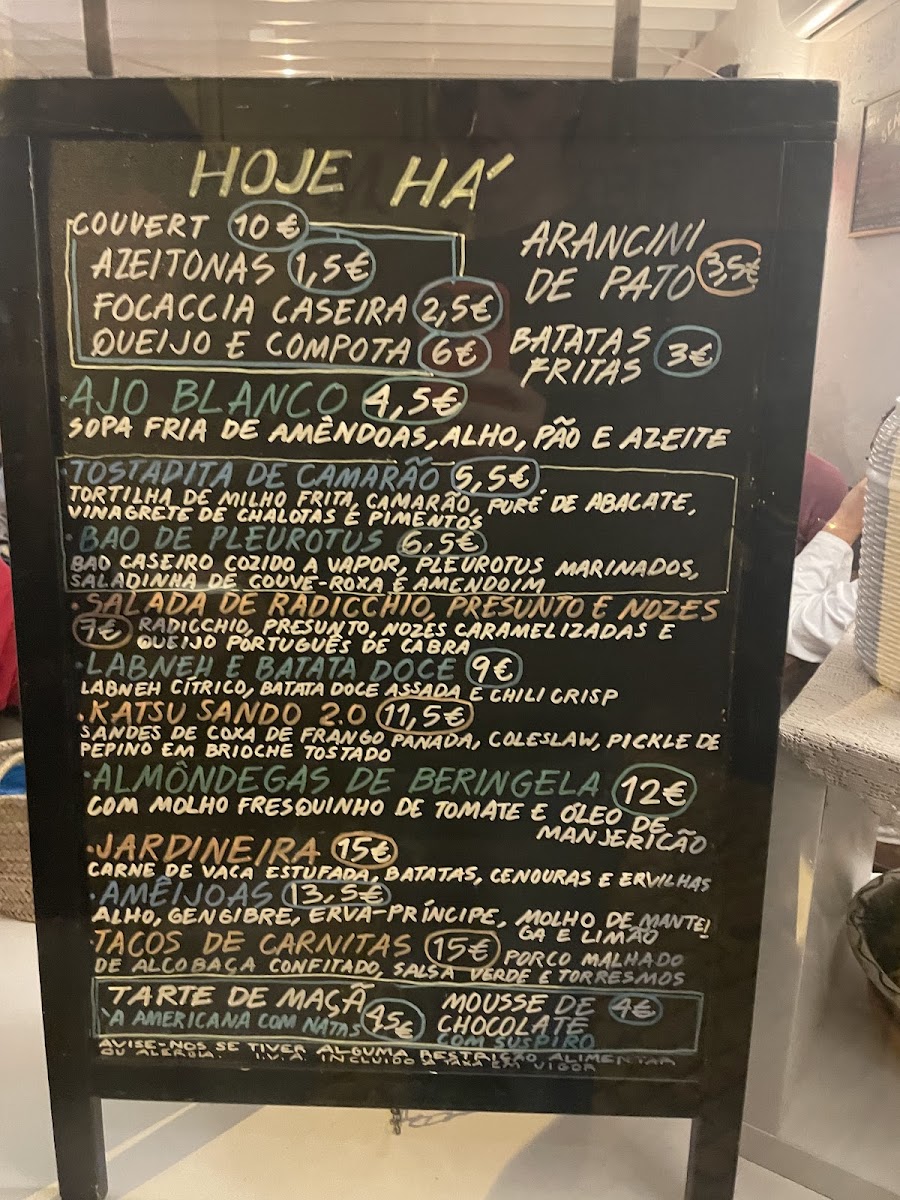 HOJE HÁ
COUVERT 10€
AZEITONAS 1,5€
FOCACCIA CASEIRA 2,5€
QUEIJO E COMPOTA 6€
ARANCINI
DE PATO 3,5€
BATATAS
FRITAS 3€
·AJO BLANCO 4,5€
SOPA FRIA DE AMÊNDOAS, ALHO, PÃO E AZEITE
·TOSTADITA DE CAMARÃO 5,5€
TORTILHA DE MILHO FRITA, CAMARÃO, PURÉ DE ABACATE,
VINAGRETE DE CHALOTAS E PIMENTOS
·BAO DE PLEUROTUS 6,5€
BAO CASEIRO COZIDO A VAPOR, PLEUROTUS MARINADOS,
SALADINHA DE COUVE-ROXA E AMENDOIM
·SALADA DE RADICCHIO, PRESUNTO E NOZES
7€ RADICCHIO, PRESUNTO, NOZES CARAMELIZADAS E
QUEIJO PORTUGUÊS DE CABRA
·LABNEH E BATATA DOCE 9€
LABNEH CÍTRICO, BATATA DOCE ASSADA E CHILI CRISP
·KATSU SANDO 2.0 11,5€
SANDES DE COXA DE FRANGO PANADA, COLESLAW, PICKLE DE
PEPINO EM BRIOCHE TOSTADO
·ALMÔNDEGAS DE BERINGELA 12€
COM MOLHO FRESQUINHO DE TOMATE E ÓLEO DE
MANJERICÃO
·JARDINEIRA 15€
CARNE DE VACA ESTUFADA, BATATAS, CENOURAS E ERVILHAS
·AMÊIJOAS 13,5€
ALHO, GENGIBRE, ERVA-PRÍNCIPE, MOLHO DE MANTEI
GA E LIMÃO
·TACOS DE CARNITAS 15€ PORCO MALHADO
DE ALCOBAÇA CONFITADO, SALSA VERDE E TORRESMOS
TARTE DE MAÇÃ
À AMERICANA COM NATAS 4,5€
MOUSSE DE 4€
CHOCOLATE
COM SUSPIRO
AVISE-NOS SE TIVER ALGUMA RESTRIÇÃO ALIMENTAR
OU ALERGIA. I.V.A. INCLUÍDO À TAXA EM VIGOR